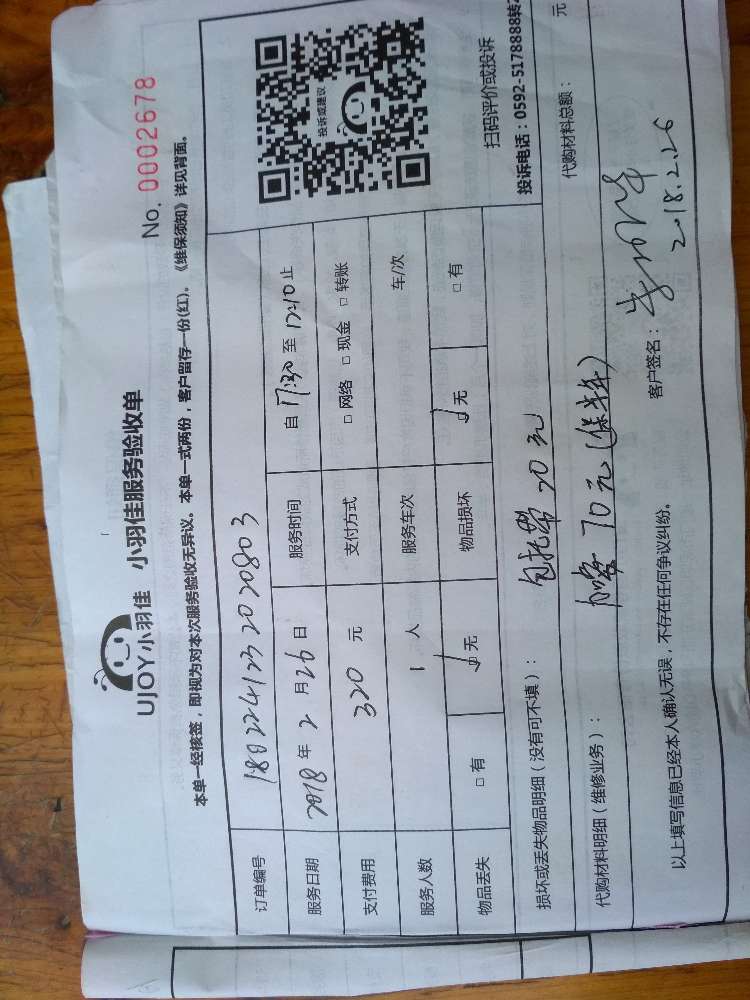 UJOY小羽佳 小羽佳服务验收单
No. 0002678
本单一经核签，即视为对本次服务验收无异议。本单一式两份，客户留存一份(红)。《维保须知》详见背面。
订单编号 1802241232020803
服务日期 2018 年 2 月 26 日 服务时间 自 17:30 至 17:10 止
支付费用 320 元 支付方式 □ 网络 □ 现金 □ 转账
服务人数 1 人 服务车次 车/次
物品丢失 □ 有 □ 无 物品损坏 □ 无 □ 有
投诉或建议
扫码评价或投诉
投诉电话：0592-5178888转2
损坏或丢失物品明细（没有可不填）： 20元
代购材料明细（维修业务）： 70元（保半年） 代购材料总额： 元
以上填写信息已经本人确认无误，不存在任何争议纠纷。
客户签名：
2018.2.26